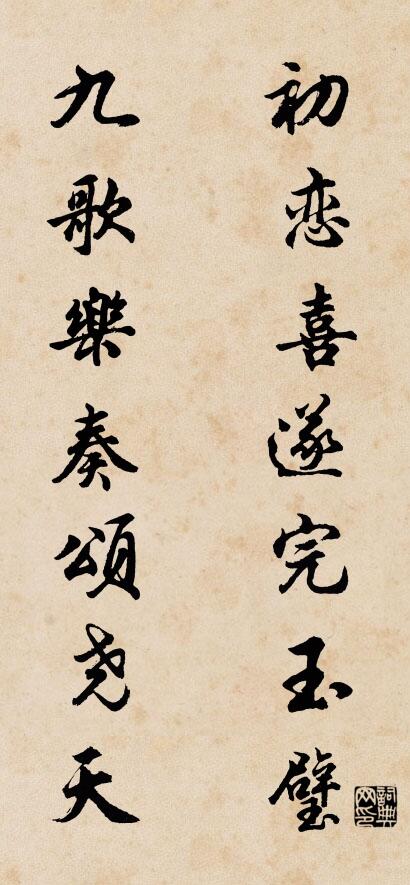 初恋喜遂完玉璧
九歌樂奏頌尧天
詞典网印